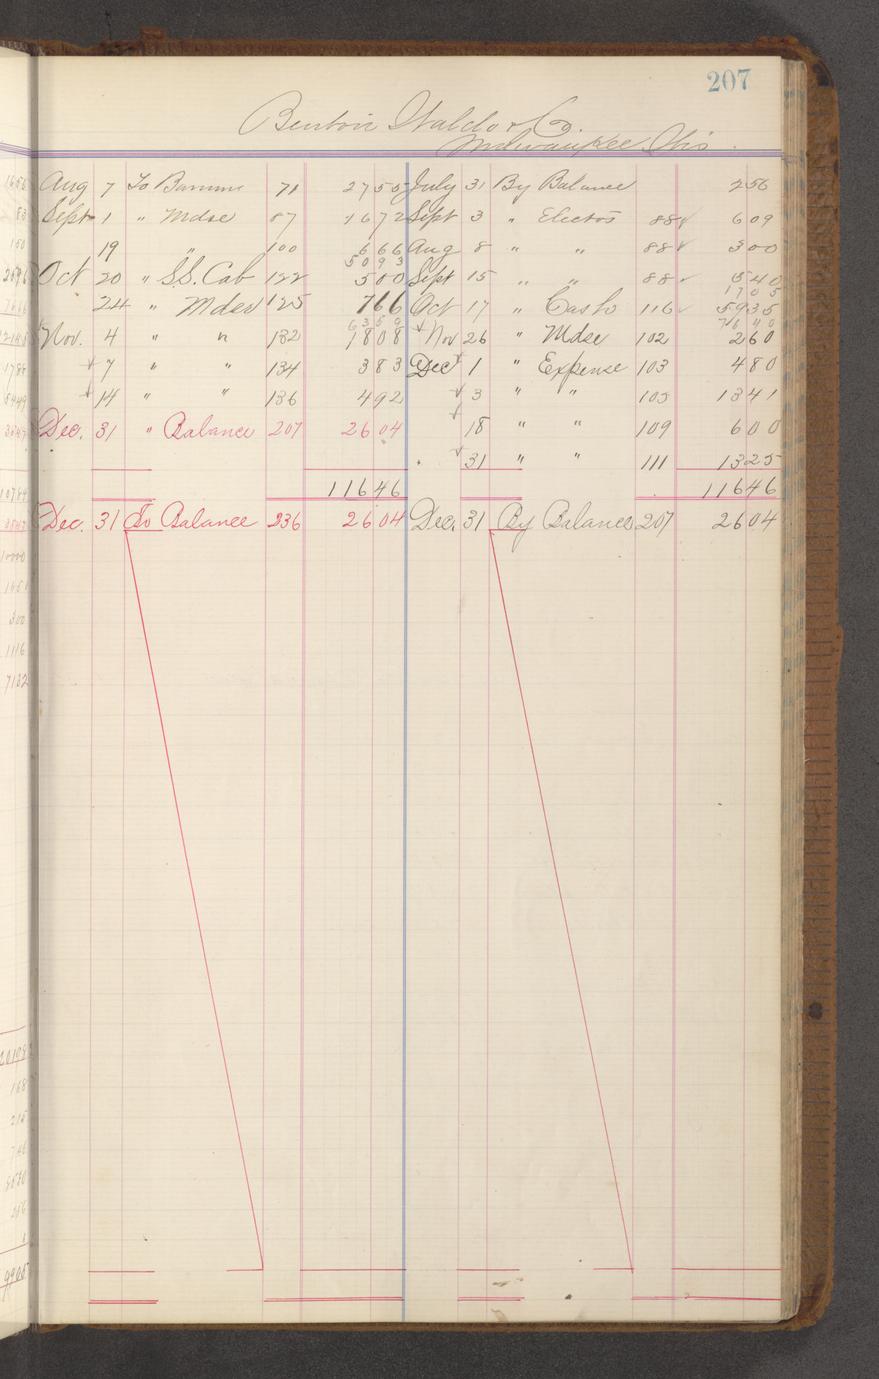 207
Benton Waldo & Co.
Milwaukee Wis.
Aug 7 To Bamm 71 2755 July 31 By Balance 256
Sept 1 " Mdse 87 1672 Sept 3 " Electos 88 609
19 " 100 666 Aug 8 " " 88 300
5093
Oct 20 " S.S. Cab 122 500 Sept 15 " " 88 540
1705
24 " Mdse 125 766 Oct 17 " Cash 116 5935
6359 7640
Nov. 4 " " 132 1808 Nov 26 " Mdse 102 260
7 " " 134 383 Dec 1 " Expense 103 480
14 " " 136 492 3 " " 105 1341
Dec. 31 " Balance 207 2604 18 " " 109 600
31 " " 111 1325
11646 11646
Dec. 31 To Balance 236 2604 Dec. 31 By Balance 207 2604